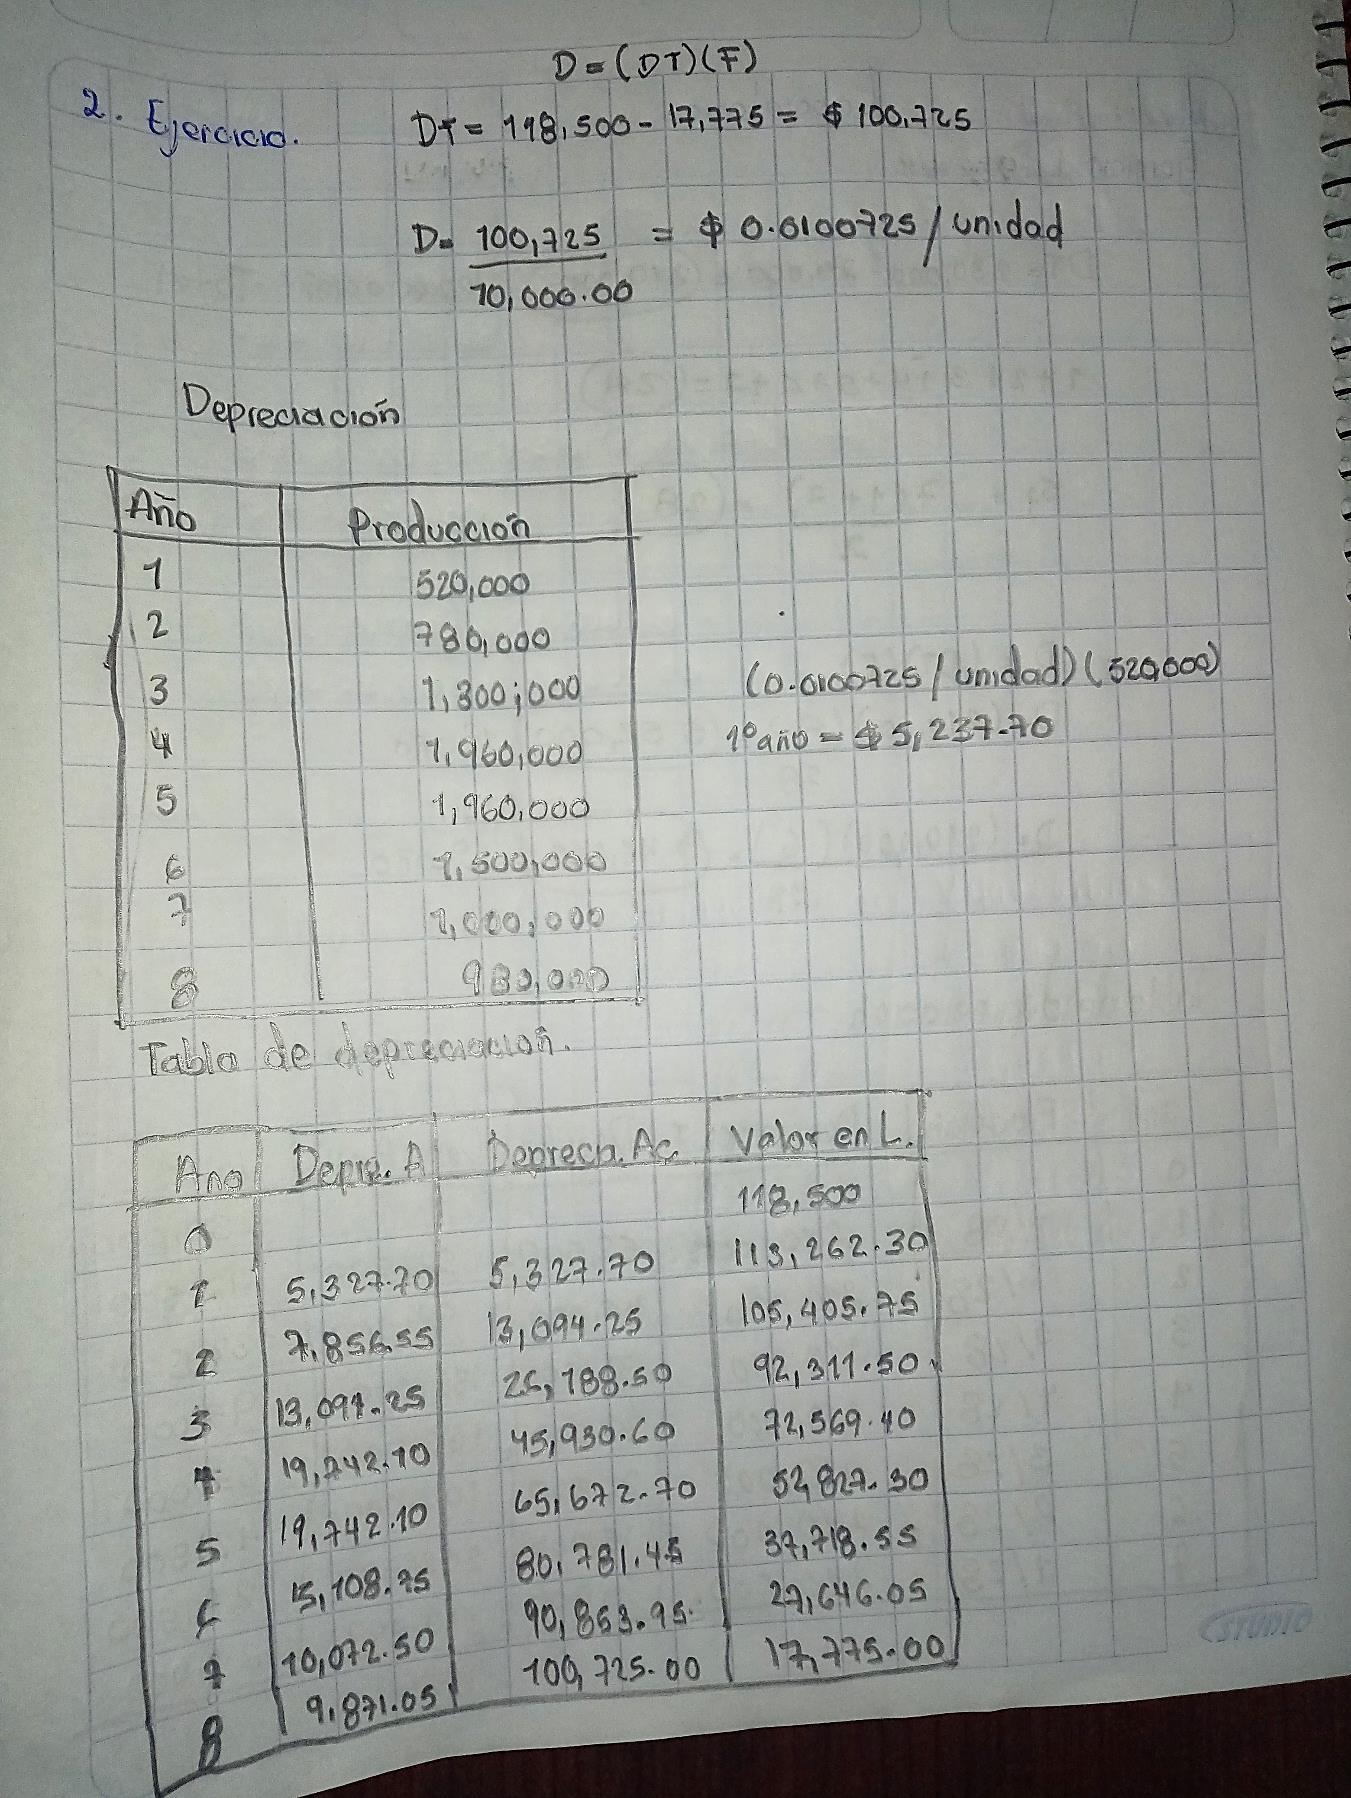 D = (DT)(F)
2. Ejercicio.
DT = 118,500 - 17,775 = $ 100,725
D = 100,725 = $ 0.0100725 / unidad
10,000.00
Depreciación
Año Producción
1 520,000
2 780,000
3 1,300,000
4 1,960,000
5 1,960,000
6 1,500,000
7 1,000,000
8 980,000
(0.0100725 / unidad) (520,000)
1º año = $ 5,237.70
Tabla de depreciación.
Año Depre. A Deprecia. Ac. Valor en L.
0 118,500
1 5,327.70 5,327.70 113,262.30
2 7,856.55 13,094.25 105,405.75
3 13,094.25 26,188.50 92,311.50
4 19,742.10 45,930.60 72,569.40
5 19,742.10 65,672.70 52,827.30
6 15,108.75 80,781.45 37,718.55
7 10,072.50 90,853.95 27,646.05
8 9,871.05 100,725.00 17,775.00
STUDIO